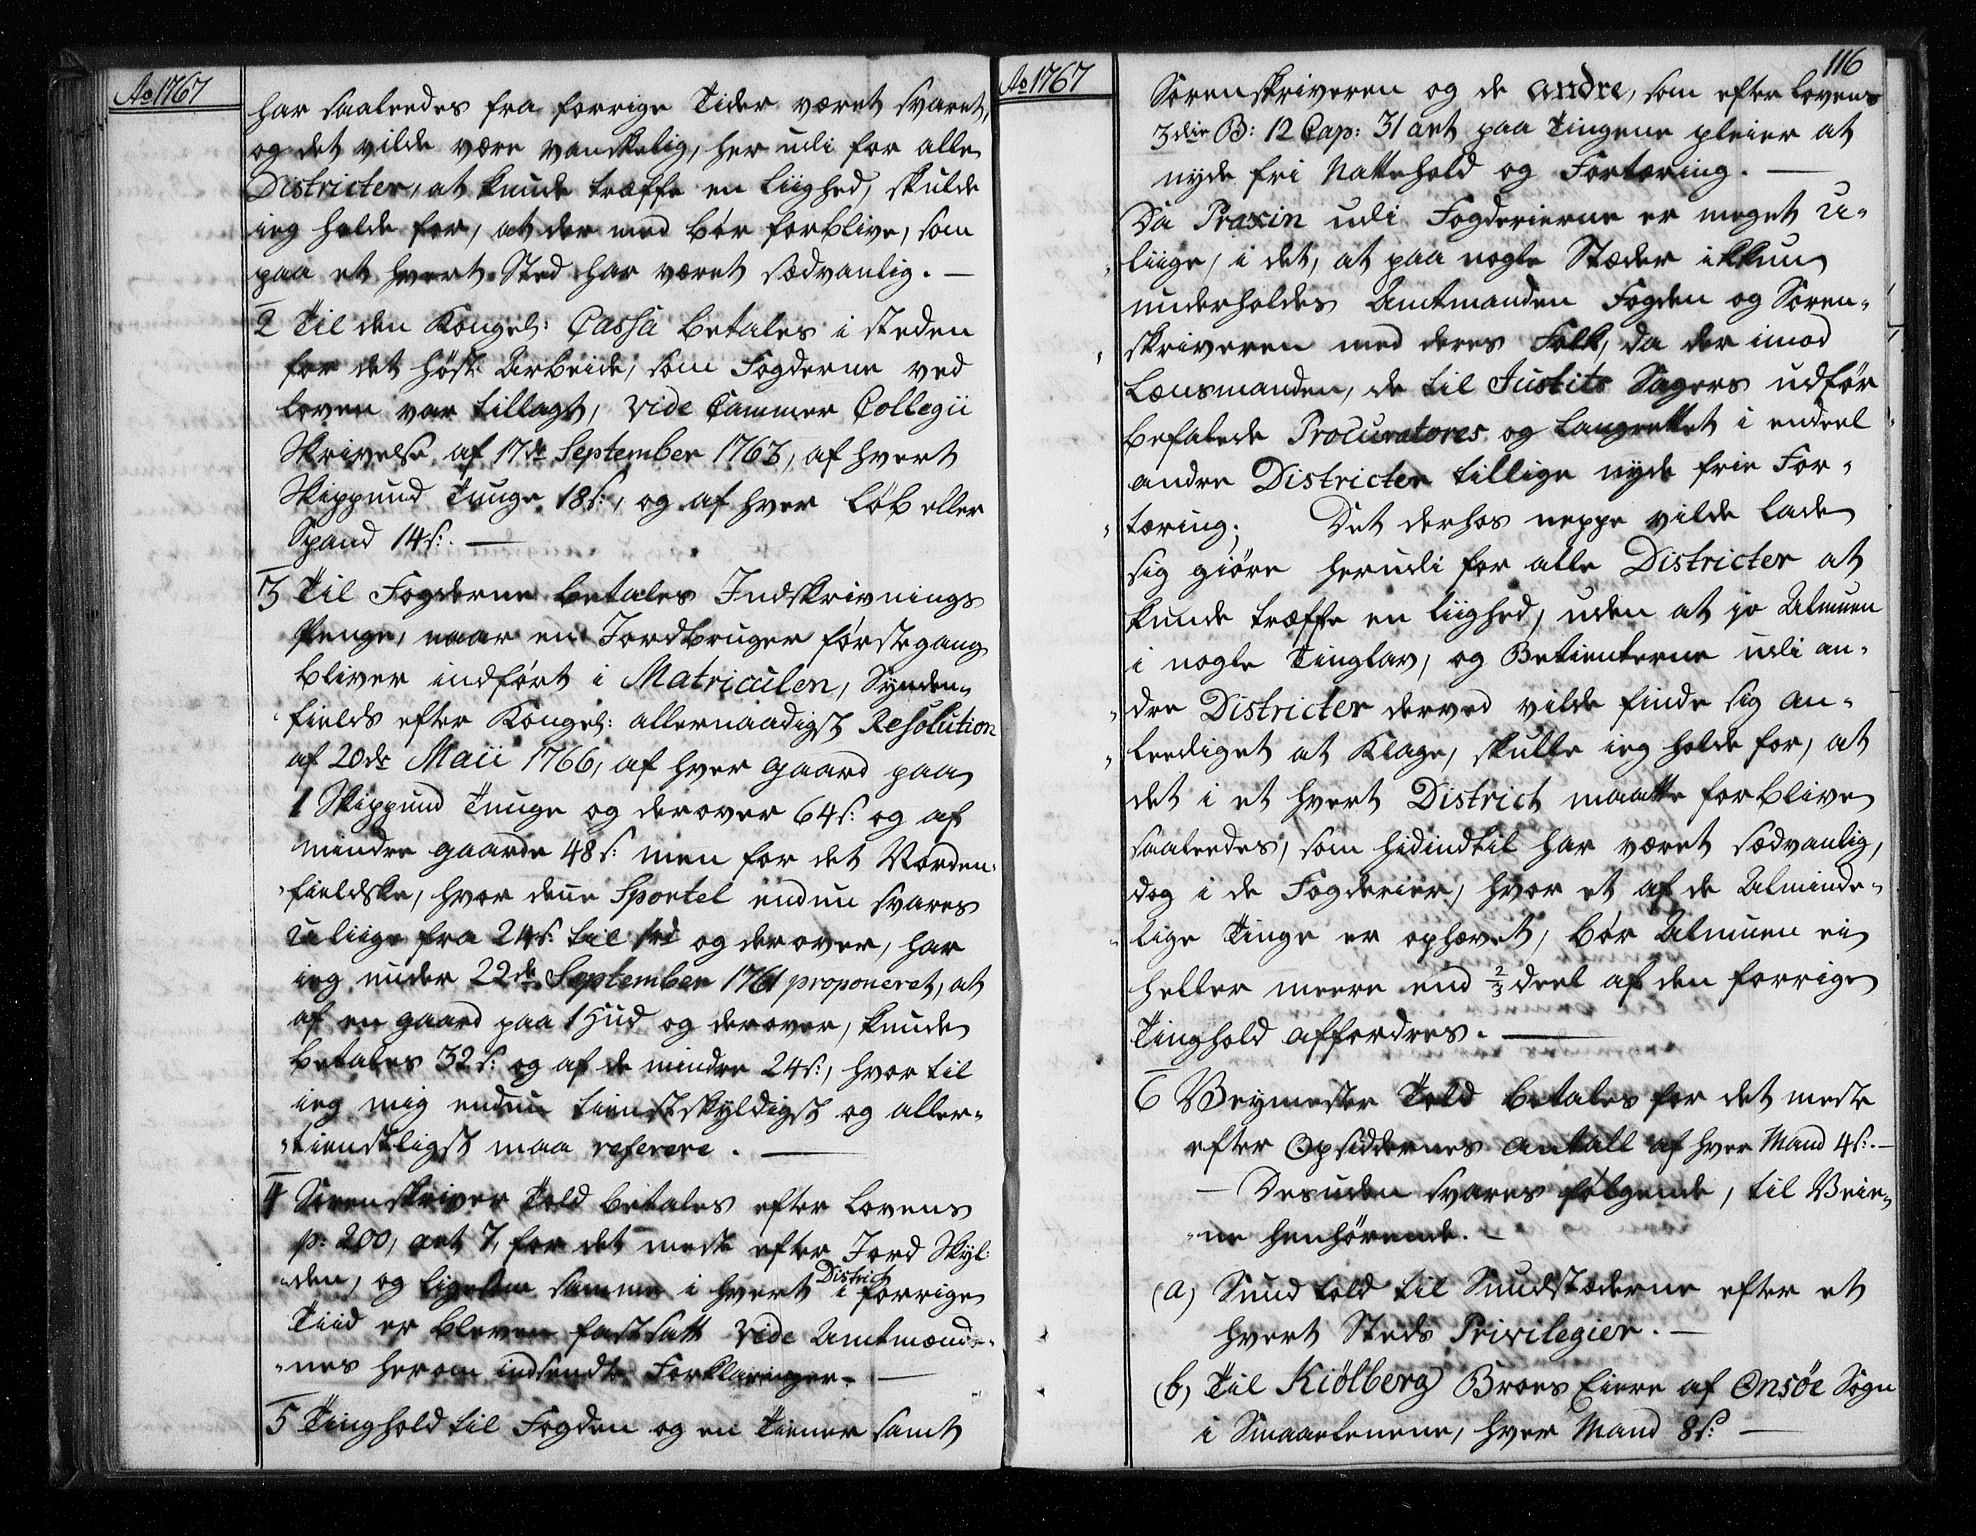 Ao 1767
har saaleedes fra forrige Tider været svaret,
og det vilde være vanskelig, her udi for alle
Districter, at kunde træffe en liighed, skulde
ieg holde for, at der med bør forblive, som
paa et hvert Sted har været sædvanlig. —
2 Til den Kongel: Cassa betales i steden
for det høst Arbeide, som Fogderne ved
Loven var tillagt, vide Cammer Collegii
Skrivelse af 17de September 1763, af hvert
Skippund Tunge 18 s:, og af hver Løb eller
Spand 14 s: —
3 Til Fogderne betales Indskrivnings
Penge, naar en Jordbruger første gang
bliver indført i Matriculen, Synden-
fields efter Kongel: allernaadigst Resolution
af 20de Maii 1766, af hver gaard paa
1 Skippund Tunge og derover 64 s: og af
mindre gaarde 48 s: men for det Norden-
fieldske, hvor denne Sportel endnu svares
uliige fra 24 s: til 1 rd og derover, har
ieg under 22de September 1761 proponeret, at
af en gaard paa 1 Hud og derover, kunde
betales 32 s: og af de mindre 24 s:, hvor til
ieg mig endnu tienstskyldigst og aller-
tienstligst maa referere. —
4 Sorenskriver Told betales efter Lovens
p: 200, art 7, for det meste efter Jord Skyl-
den, og ligesom samme i hvert District i forrige
Tiid er bleven fastsatt vide Amtmænde-
nes herom indsendte Forklaringer. —
5 Tinghold til Fogden og en Tiener samt
Ao 1767
116
Sorenskriveren og de andre, som efter Lovens
3die B: 12 Cap: 31 art paa Tingene pleier at
nyde fri Nattehold og Fortæring. —
Da Praxin udi Fogderierne er meget u-
liige, i det, at paa nogle Stæder ikkun
underholdes Amtmanden Fogden og Soren-
skriveren med deres Folk, da der imod
Lensmanden, de til Justits Sagers udfør
befalede Procuratores og Laugrettet i endeel
andre Districter tillige nyde frie For-
tæring; Det derhos neppe vilde lade
sig giøre herudi for alle Districter at
kunde træffe en liighed, uden at jo Almuen
i nogle Tinglav, og Betienterne udi an-
dre Districter derved vilde finde sig an-
leediget at Klage, skulle ieg holde for, at
det i et hvert District maatte forblive
saaleedes, som hidindtil har været sædvanlig,
dog i de Fogderier, hvor et af de Alminde-
lige Tinge er ophævet, bør Almuen ei
heller meere end 2/3 deel af den forrige
Tinghold affordres. —
6 Veymester Told betales for det meste
efter Opsiddernes Antall af hver Mand 4 s: —
— Desuden svares følgende, til Veie-
ne henhørende. —
(a) Sund told til Sundstæderne efter et
hvert Steds Privilegier. —
(b) Til Kiølberg Broes Eiere af Onsøe Sogn
i Smaalenene, hver Mand 8 s: —